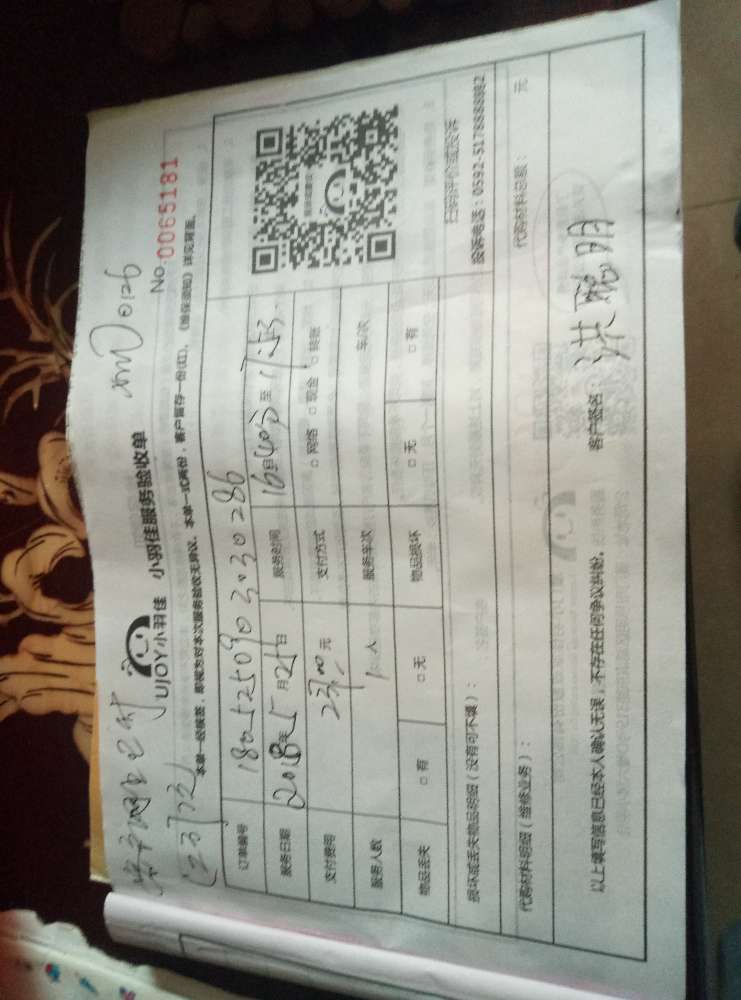 UJOY小羽佳 小羽佳服务验收单
No.0065181
本单一经核签，即视为对本次服务验收无异议。本单一式两份，客户留存一份(红)，《维保须知》详见背面。
订单编号 180525090303030286
服务日期 2018年5月25日 服务时间 16时40分至17:53
支付费用 237.00元 支付方式 □网络 □现金 □转账
服务人数 1人 服务车次 车/次
物品丢失 □有 □无 物品损坏 □无 □有
扫码评价或投诉
投诉电话：0592-5178888转882
损坏或丢失物品明细（没有可不填）：
代购材料明细（维修业务）： 代购材料总额： 元
以上填写信息已经本人确认无误，不存在任何争议纠纷。 客户签名： 洪聪明